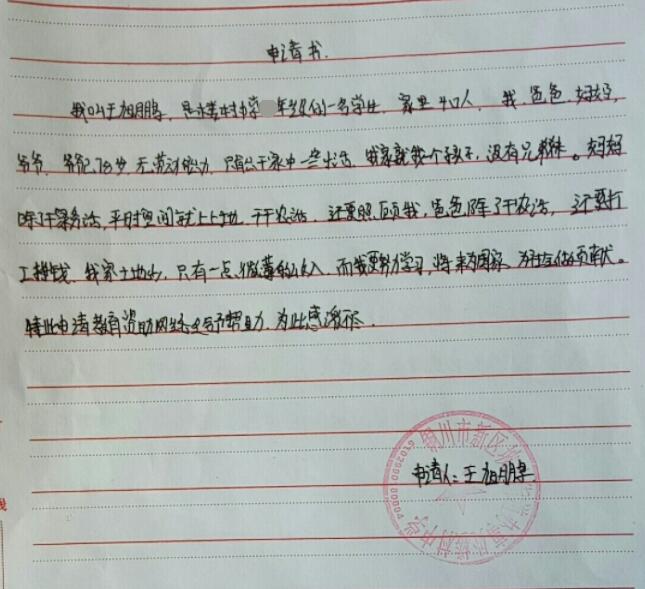 申请书.
我叫王旭鹏,是 村中学 年级的一名学生,家里4口人,我、爸爸、妈妈,
爷爷,爷爷78岁,无劳动能力,只能在家中一些生活,我家就我一个孩子,没有兄弟妹。妈妈
除了干家务活,平时空闲就上土地,干干农活,还要照顾我,爸爸除了干农活,还要打
工挣钱,我家土地少,只有一点微薄的收入,而我要努力学习,将来为国家、为社会做贡献。
特此申请教育资助网络给予帮助,为此感谢不尽.
申请人:王旭鹏
铜川市新区 中学